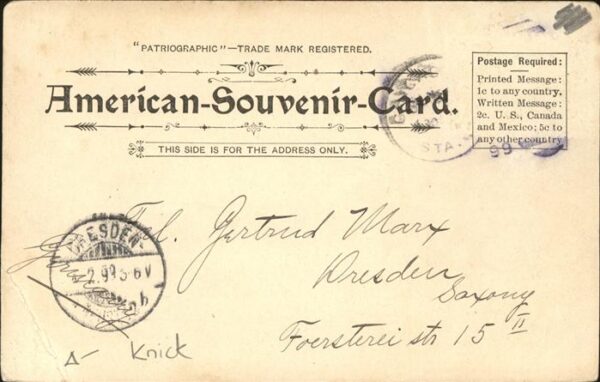 "PATRIOGRAPHIC"—TRADE MARK REGISTERED.
American-Souvenir-Card.
THIS SIDE IS FOR THE ADDRESS ONLY.
Postage Required:
Printed Message:
1c to any country.
Written Message:
2c. U. S., Canada
and Mexico; 5c to
any other country
STA.
99
Frl. Gertrud Marx
Dresden
Saxony
Foersterei str 15 II
DRESDEN
2.99 3-6 V
Knick